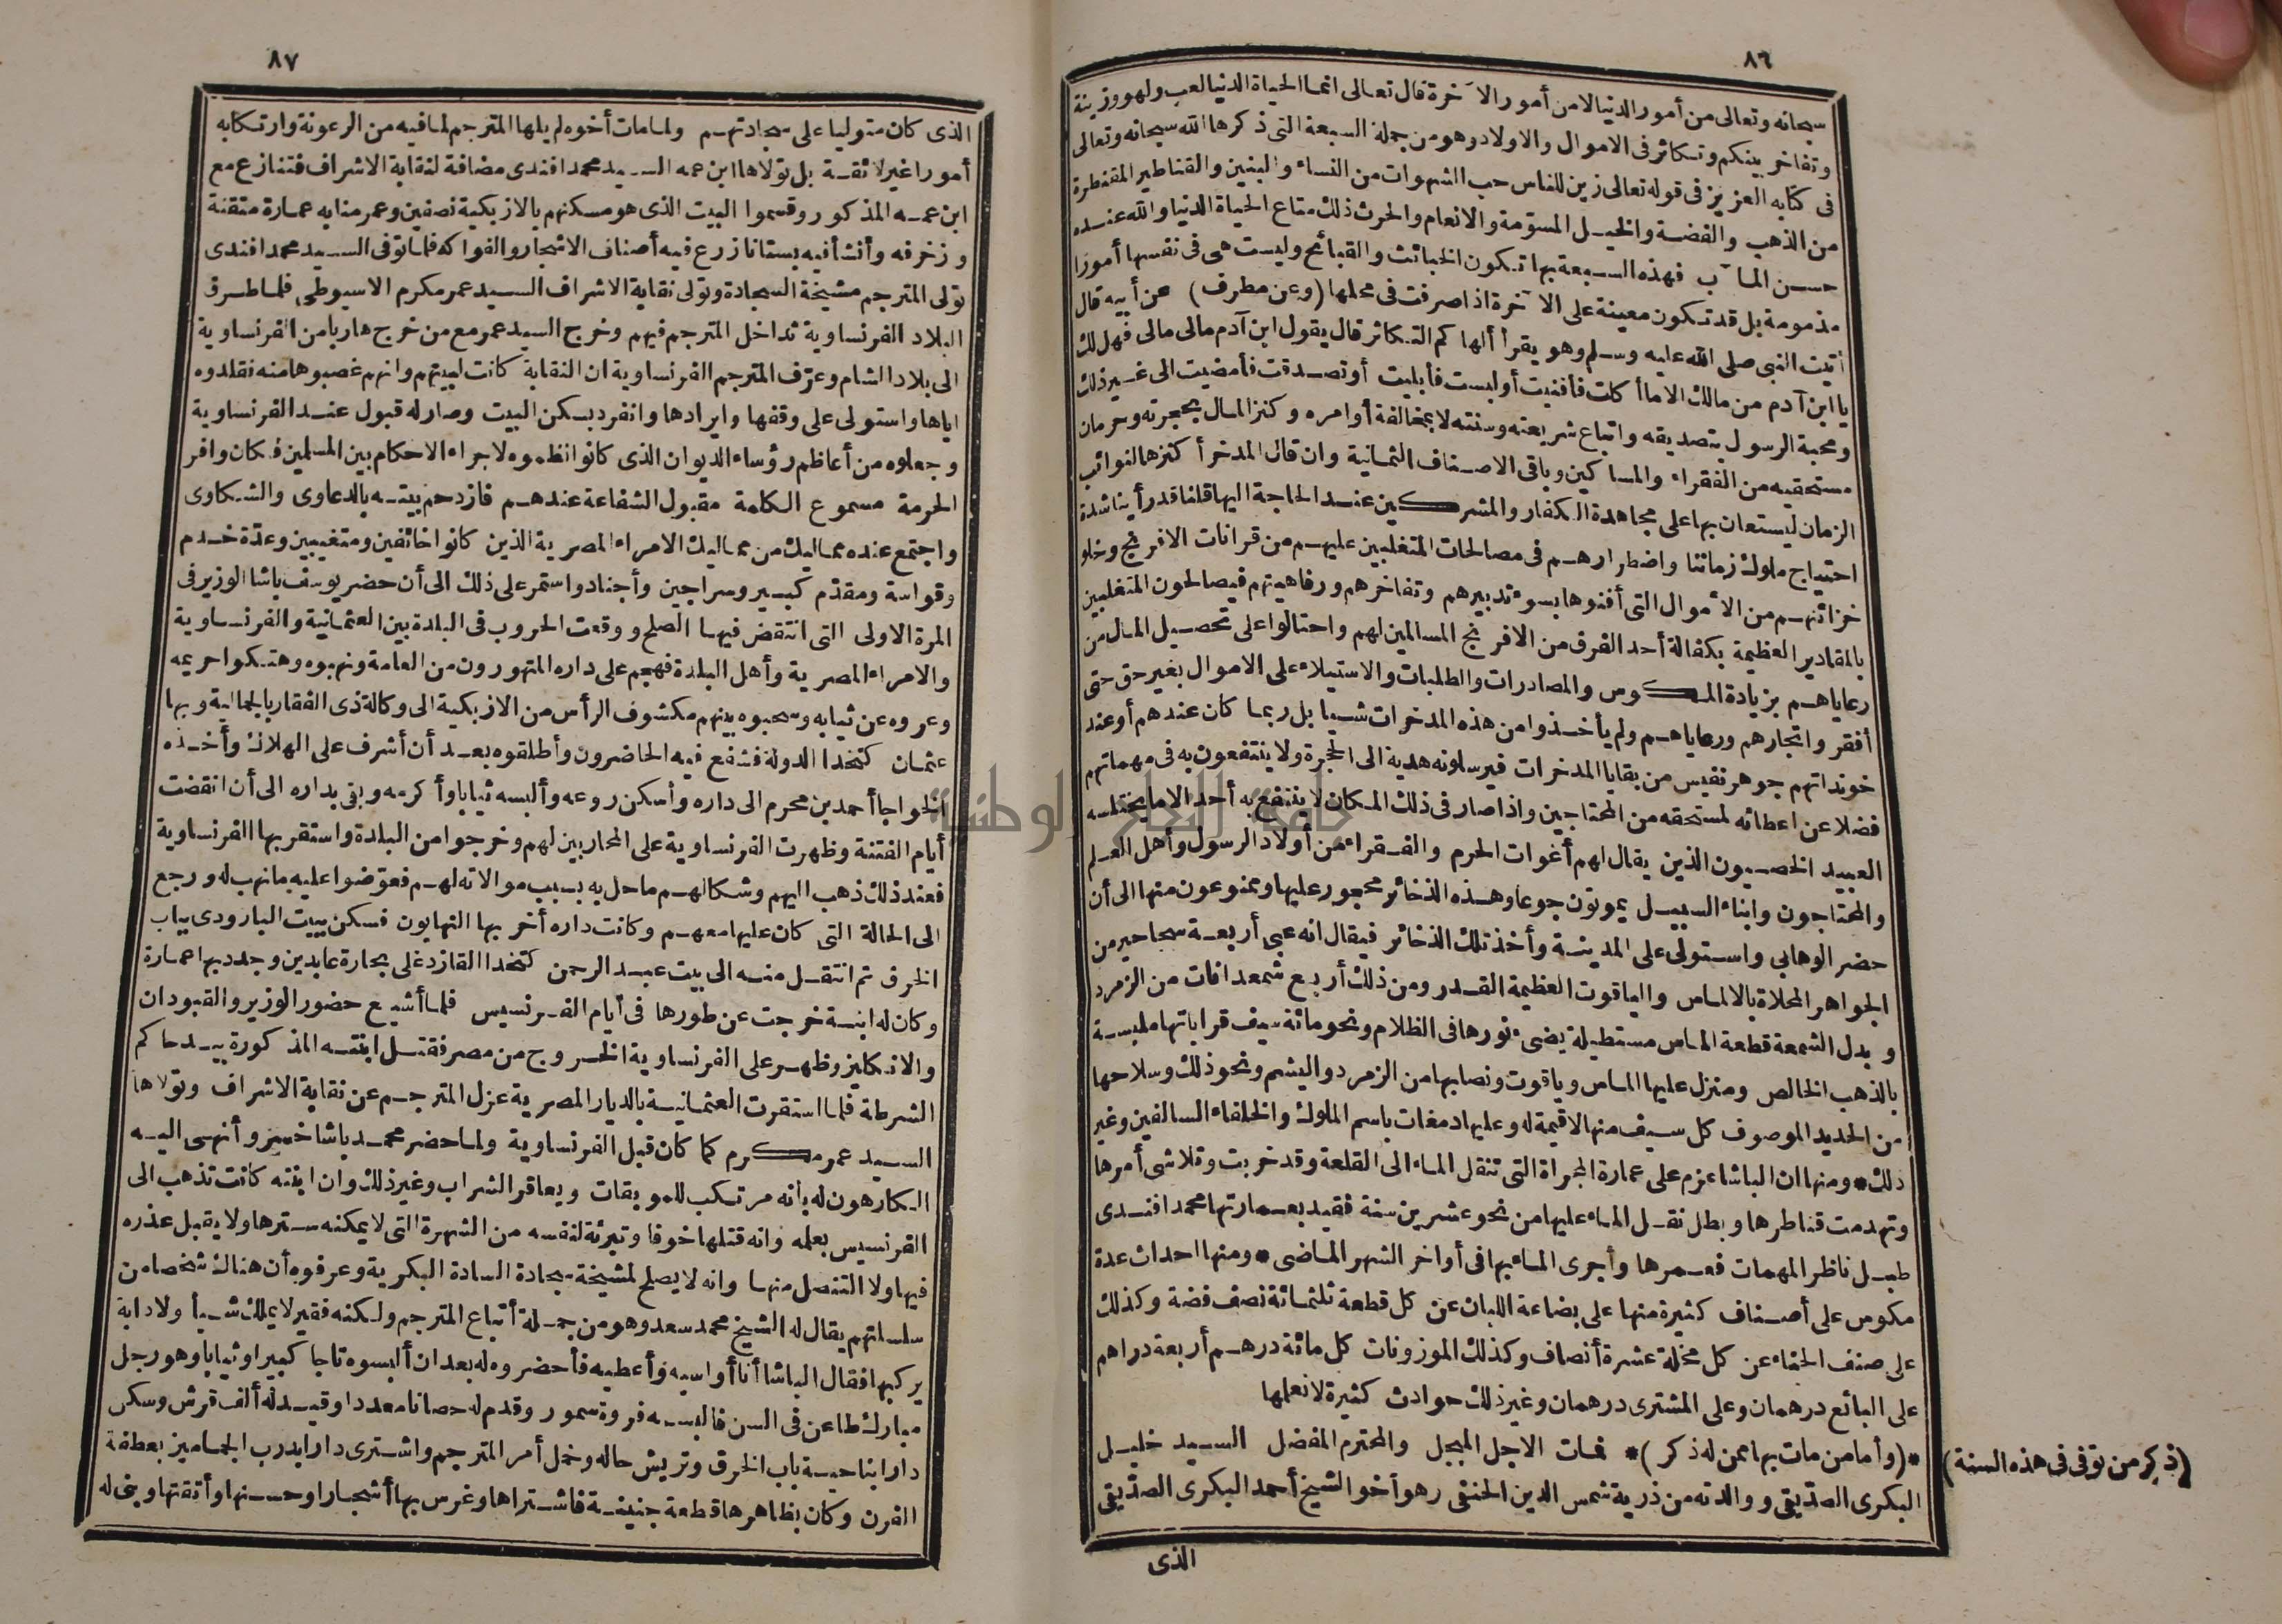 ٨٦
سبحانه وتعالى من أمور الدنيا لا من أمور الآخرة قال تعالى انما الحياة الدنيا لعب ولهو وزينة
وتفاخر بينكم وتكاثر فى الاموال والاولاد وهو من جملة السبعة التى ذكرها الله سبحانه وتعالى
فى كتابه العزيز فى قوله تعالى زين للناس حب الشهوات من النساء والبنين والقناطير المقنطرة
من الذهب والفضة والخيل المسوّمة والانعام والحرث ذلك متاع الحياة الدنيا والله عنده
حسن المآب فهذه السبعة بها تكون الخبائث والقبائح وليست هى فى نفسها أمورا
مذمومة بل قد تكون معينة على الآخرة اذا صرفت فى محلها (وعن مطرف) عن أبيه قال
أتيت النبى صلى الله عليه وسلم وهو يقرأ ألهاكم التكاثر قال يقول ابن آدم مالى مالى فهل لك
يا ابن آدم من مالك الا ما أكلت فأفنيت أو لبست فأبليت أو تصدقت فأمضيت الى غير ذلك
ومحبة الرسول بتصديقه واتباع شريعته وسنته لا بمخالفة أوامره وكنز المال بحجرته وحرمان
مستحقيه من الفقراء والمساكين وباقى الاصناف الثمانية وان قال المدخر أكنزها لنوائب
الزمان ليستعان بها على مجاهدة الكفار والمشركين عند الحاجة اليها قلنا قد رأينا شدة
احتياج ملوك زماننا واضطرارهم فى مصالحات المتغلبين عليهم من قرانات الافرنج وخلو
خزائنهم من الأموال التى أفنوها بسوء تدبيرهم وتفاخرهم ورفاهيتهم فيصالحون المتغلبين
بالمقادير العظيمة بكفالة أحد الفرق من الافرنج المسالمين لهم واحتالوا على تحصيل المال من
رعاياهم بزيادة المكوس والمصادرات والطلبات والاستيلاء على الاموال بغير حق حتى
أفقروا تجارهم ورعاياهم ولم يأخذوا من هذه المدخرات شيا بل ربما كان عندهم أو عند
خونداتهم جوهر نفيس من بقايا المدخرات فيرسلونه هدية الى الحجرة ولا ينتفعون به فى مهماتهم
فضلا عن اعطائه لمستحقه من المحتاجين واذا صار فى ذلك المكان لا ينتفع به أحد الا ما يختلسه
العبيد الخصيون الذين يقال لهم أغوات الحرم والفقراء من أولاد الرسول وأهل العلم
والمحتاجون وابناء السبيل يموتون جوعا وهذه الذخائر محجور عليها وممنوعون منها الى أن
حضر الوهابى واستولى على المدينة وأخذ تلك الذخائر فيقال انه عبى أربعة سحاحير من
الجواهر المحلاة بالالماس والياقوت العظيمة القدر ومن ذلك أربع شمعدانات من الزمرد
وبدل الشمعة قطعة الماس مستطيلة يضىء نورها فى الظلام ونحو مائة سيف قراباتها ملبسة
بالذهب الخالص ومنزل عليها الماس وياقوت ونصابها من الزمرد واليشم ونحو ذلك وسلاحها
من الحديد الموصوف كل سيف منها لا قيمة له وعليها دمغات باسم الملوك والخلفاء السالفين وغير
ذلك * ومنها ان الباشا عزم على عمارة المجراة التى تنقل الماء الى القلعة وقد خربت وتلاشى أمرها
وتهدمت قناطرها وبطل نقل الماء عليها من نحو عشرين سنة فقيد بعمارتها محمد افندى
طبل ناظر المهمات فعمرها وأجرى الماء بها فى أواخر الشهر الماضى * ومنها احداث عدة
مكوس على أصناف كثيرة منها على بضاعة اللبان عن كل قطعة ثلثمائة نصف فضة وكذلك
على صنف الحناء عن كل مخلة عشرة أنصاف وكذلك الموزونات كل مائة درهم أربعة دراهم
على البائع درهمان وعلى المشترى درهمان وغير ذلك حوادث كثيرة لا نعلمها
*(وأما من مات بها ممن له ذكر)* فمات الاجل المبجل والمحترم المفضل السيد خليل
(ذكر من توفى فى هذه السنة)
البكرى الصدّيقى ووالدته من ذرية شمس الدين الحنفى وهو أخو الشيخ أحمد البكرى الصدّيقى
الذى
٨٧
الذى كان متوليا على سجادتهم ولما مات أخوه لم يلها المترجم لما فيه من الرعونة وارتكابه
أمورا غير لائقة بل تولاها ابن عمه السيد محمد افندى مضافة لنقابة الاشراف فتنازع مع
ابن عمه المذكور وقسموا البيت الذى هو مسكنهم بالازبكية نصفين وعمر منابه عمارة متقنة
وزخرفه وأنشأ فيه بستانا زرع فيه أصناف الاشجار والفواكه فلما توفى السيد محمد افندى
تولى المترجم مشيخة السجادة وتولى نقابة الاشراف السيد عمر مكرم الاسيوطى فلما طرق
البلاد الفرنساوية تداخل المترجم فيهم وخرج السيد عمر مع من خرج هاربا من الفرنساوية
الى بلاد الشام وعرّف المترجم الفرنساوية ان النقابة كانت لبيتهم وانهم غصبوها منه فقلدوه
اياها واستولى على وقفها وايرادها وانفرد بسكن البيت وصار له قبول عند الفرنساوية
وجعلوه من أعاظم رؤساء الديوان الذى كانوا نظموه لاجراء الاحكام بين المسلمين فكان وافر
الحرمة مسموع الكلمة مقبول الشفاعة عندهم فازدحم بيته بالدعاوى والشكاوى
واجتمع عنده مماليك من مماليك الامراء المصرية الذين كانوا خائفين ومتغيبين وعدّة خدم
وقواسة ومقدّم كبير وسراجين وأجناد واستمر على ذلك الى أن حضر يوسف باشا الوزير فى
المرة الاولى التى انتقض فيها الصلح ووقعت الحروب فى البلدة بين العثمانية والفرنساوية
والامراء المصرية وأهل البلدة فهجم على داره المتهورون من العامة ونهبوه وهتكوا حريمه
وعروه عن ثيابه وسحبوه بينهم مكشوف الرأس من الازبكية الى وكالة ذى الفقار بالجمالية وبها
عثمان كتخدا الدولة فشفع فيه الحاضرون وأطلقوه بعد أن أشرف على الهلاك وأخذه
الخواجا أحمد بن محرم الى داره وأسكن روعه وألبسه ثيابا وأكرمه وبقى بداره الى أن انقضت
أيام الفتنة وظهرت الفرنساوية على المحاربين لهم وخرجوا من البلدة واستقر بها الفرنساوية
فعند ذلك ذهب اليهم وشكا لهم ما حل به بسبب موالاته لهم فعوّضوا عليه ما نهب له ورجع
الى الحالة التى كان عليها معهم وكانت داره أخربها النهابون فسكن ببيت البارودى بباب
الخرق ثم انتقل منه الى بيت عبد الرحمن كتخدا القازدغلى بحارة عابدين وجدد بها عمارة
وكان له ابنة خرجت عن طورها فى أيام الفرنسيس فلما أشيع حضور الوزير والقبودان
والانكليز وظهر على الفرنساوية الخروج من مصر فقتل ابنته المذكورة بيد حاكم
الشرطة فلما استقرت العثمانية بالديار المصرية عزل المترجم عن نقابة الاشراف وتولاها
السيد عمر مكرم كما كان قبل الفرنساوية ولما حضر محمد باشا خسرو أنهى اليه
الكارهون له بأنه مرتكب للموبقات ويعاقر الشراب وغير ذلك وان ابنته كانت تذهب الى
الفرنسيس بعلمه وانه قتلها خوفا وتبرئة لنفسه من الشهرة التى لا يمكنه سترها ولا يقبل عذره
فيها ولا التنصل منها وانه لا يصلح لمشيخة سجادة السادة البكرية وعرفوه أن هناك شخصا من
سلسلتهم يقال له الشيخ محمد سعد وهو من جملة أتباع المترجم ولكنه فقير لا يملك شيأ ولا دابة
يركبها فقال الباشا أنا أواسيه وأعطيه فأحضروه له بعد ان ألبسوه تاجا كبيرا وثيابا وهو رجل
مبارك طاعن فى السن فالبسه فروة سمور وقدم له حصانا معددا وقيد له ألف قرش وسكن
دارا بناحية باب الخرق وتريش حاله وخمل أمر المترجم واشترى دارا بدرب الجماميز بعطفة
الفرن وكان بظاهرها قطعة جنينة فاشتراها وغرس بها أشجارا وحسنها وأتقنها وبنى له
جامعة النجاح الوطنية